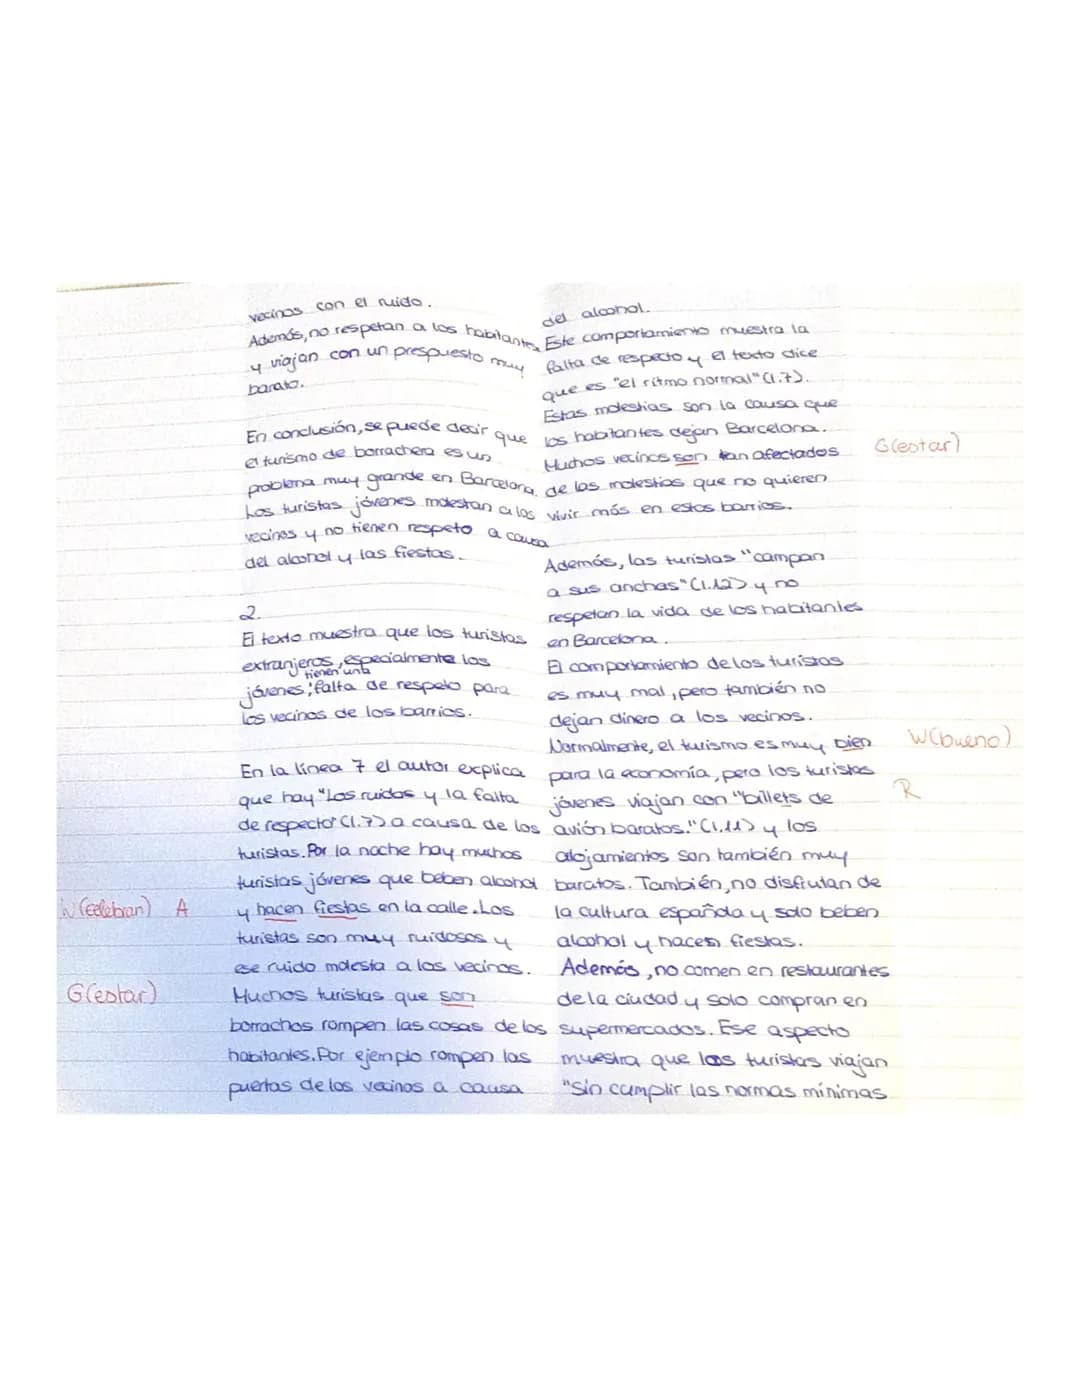 vecinos con el ruido.
Además, no respetan a los habitantes
y viajan con un prespuesto muy
barato.
En conclusión, se puede decir que
el turismo de borrachera es un
problema muy grande en Barcelona.
Los turistas jóvenes molestan a los
vecinos y no tienen respeto a causa
del alcohol y las fiestas.
2.
El texto muestra que los turistas
extranjeros, especialmente los
tienen una
jóvenes, falta de respeto para
los vecinos de los barrios.
En la línea 7 el autor explica
que hay "Los ruidos y la falta
de respecto" (l.7) a causa de los
turistas. Por la noche hay muchos
turistas jóvenes que beben alcohol
W (celebran) A
y hacen fiestas en la calle. Los
turistas son muy ruidosos y
ese ruido molesta a los vecinos.
G (estar)
Muchos turistas que son
borrachos rompen las cosas de los
habitantes. Por ejemplo rompen las
puertas de los vecinos a causa
del alcohol.
Este comportamiento muestra la
falta de respecto y el texto dice
que es "el ritmo normal" (l.7).
Estas molestias son la causa que
los habitantes dejan Barcelona.
Muchos vecinos son tan afectados
G (estar)
de las molestias que no quieren
vivir más en estos barrios.
Además, los turistas "campan
a sus anchas" (l.12) y no
respetan la vida de los habitantes
en Barcelona.
El comportamiento de los turistas
es muy mal, pero también no
dejan dinero a los vecinos.
Normalmente, el turismo es muy bien
W (bueno)
para la economía, pero los turistas
jóvenes viajan con "billets de
R
avión baratos." (l.11) y los
alojamientos son también muy
baratos. También, no disfrutan de
la cultura española y solo beben
alcohol y hacen fiestas.
Además, no comen en restaurantes
de la ciudad y solo compran en
supermercados. Ese aspecto
muestra que los turistas viajan
"sin cumplir las normas mínimas